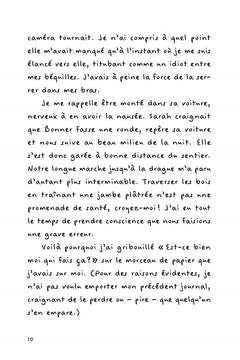 caméra tournait. Je n'ai compris à quel point
elle m'avait manqué qu'à l'instant où je me suis
élancé vers elle, titubant comme un idiot entre
mes béquilles. J'avais à peine la force de la ser-
rer dans mes bras.
Je me rappelle être monté dans sa voiture,
nerveux à en avoir la nausée. Sarah craignait
que Bonner fasse une ronde, repère sa voiture
et nous suive au beau milieu de la nuit. Elle
s'est donc garée à bonne distance du sentier.
Notre longue marche jusqu'à la drague m'a paru
d'autant plus interminable. Traverser les bois
en traînant une jambe plâtrée n'est pas une
promenade de santé, croyez-moi ! J'ai eu tout
le temps de prendre conscience que nous faisions
une grave erreur.
Voilà pourquoi j'ai gribouillé « Est-ce bien
moi qui fais ça ? » sur le morceau de papier que
j'avais sur moi. (Pour des raisons évidentes, je
n'ai pas voulu emporter mon précédent journal,
craignant de le perdre ou – pire – que quelqu'un
s'en empare.)
10